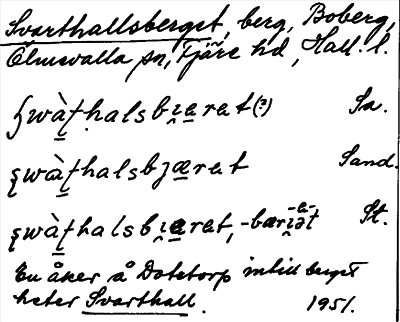 Svarthallsberget, berg, Boberg,
Ölmevalla sn, Fjäre hd, Hall. l.
swàt̠halsbi̯ærat (?) Sa.
swàt̠halsbjærat Sand.
swàt̠halsbi̯ærat, -bæriət St.
En åker å Dotetorp intill berget
heter Svarthall. 1951.